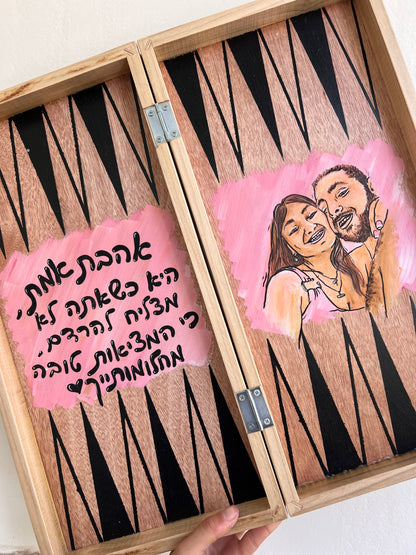 אהבת אמת,
היא כשאתה לא
מצליח להרדם.
כי המציאות טובה
מחלומותייך♥